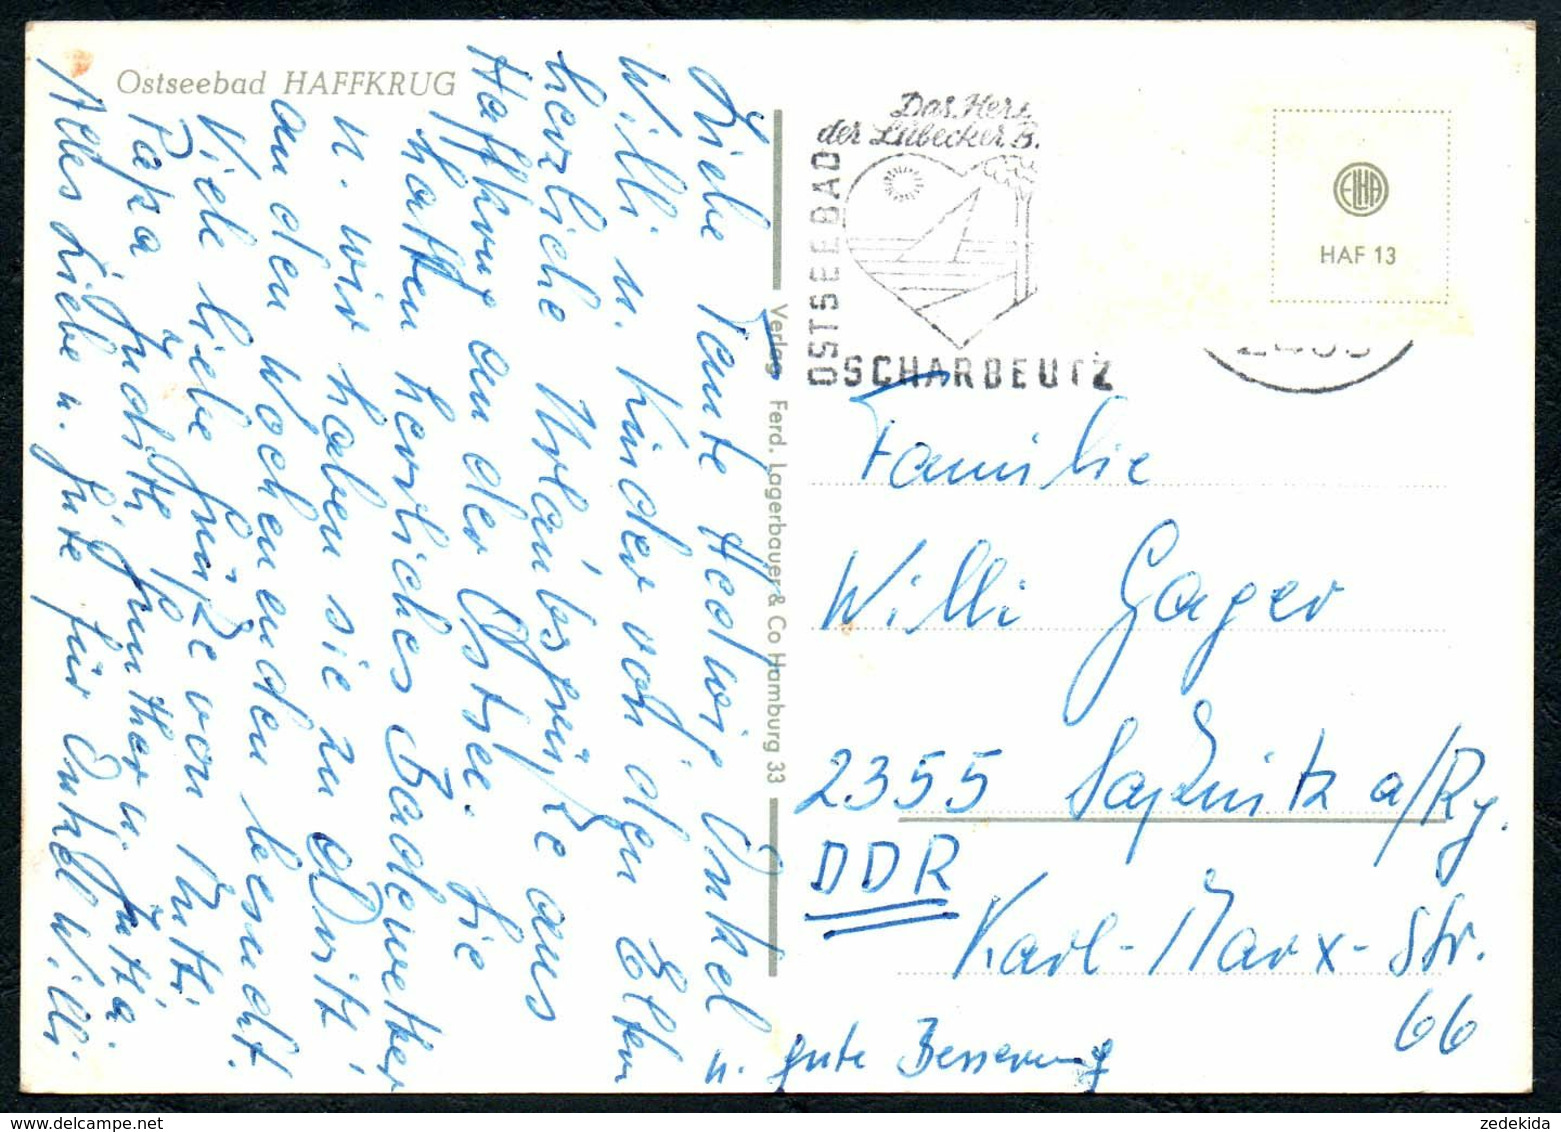 Ostseebad HAFFKRUG
Liebe Tante Hedwig, Onkel
Willi u. Kinder von den Eltern
herzliche Urlaubsgrüße aus
Haffkrug an der Ostsee. Sie
hatten herrliches Badewetter
u. wir haben sie zu Dritt
an den Wochenenden besucht.
Viele liebe Grüße von Mutti
Papa, Judith, Gunther u. Jutta.
Alles Liebe u. Gute für Onkel Willi
u. gute Besserung
Verlag Ferd. Lagerbauer & Co Hamburg 33
Das Herz
der Lübecker B.
OSTSEEBAD
SCHARBEUTZ
ELHA
HAF 13
Familie
Willi Gager
2355 Saßnitz a/Rg.
DDR
Karl-Marx-Str.
66
zedekida